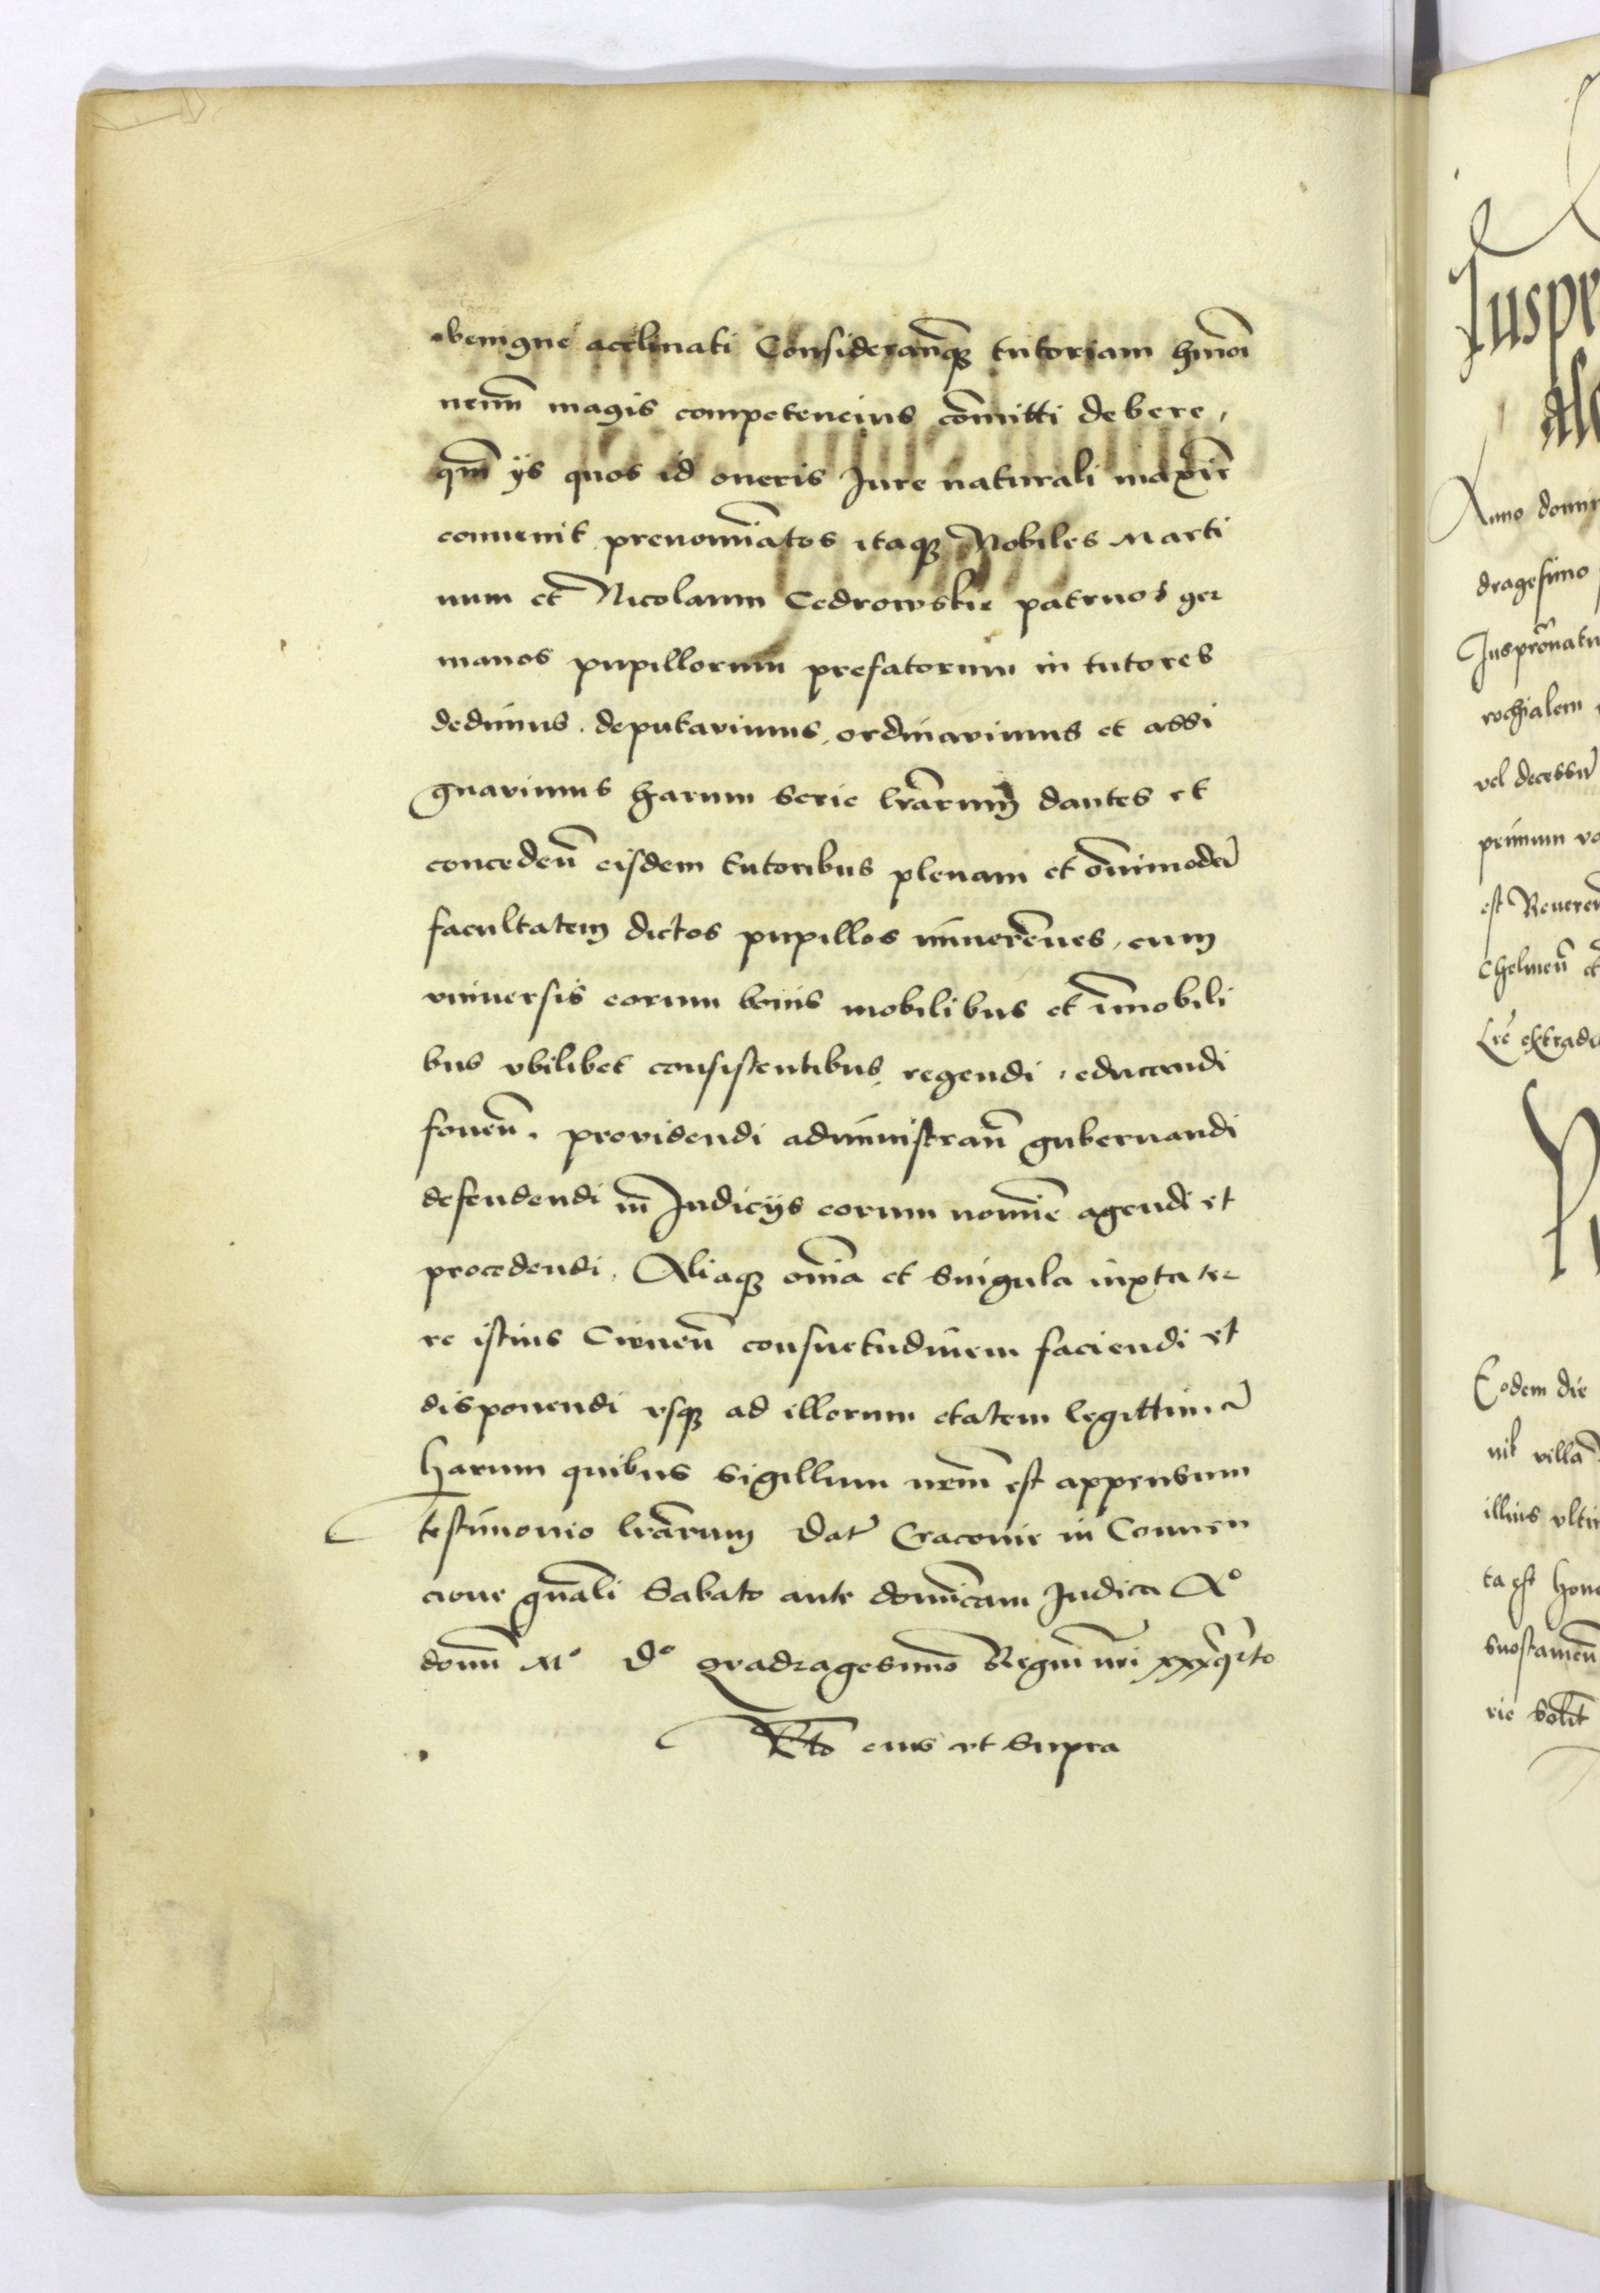 benigne acclinati Considerañq tutoriam hmoi
nemini magis competencius comitti debere,
qm ijs quos id oneris Jure naturali maxie
conuenit prenoiatos itaq Nobiles Marti
num et Nicolaum Cedrowskie patruos ger
manos pupillorum prefatorum in tutores
dedimus. deputauimus, ordinauimus et assi
gnauimus harum serie lrarum dantes et
conceden eisdem tutoribus plenam et omnimodã
facultatem dictos pupillos cum
vniuersis eorum bonis mobilibus et imobili
bus vbilibet consistentibus, regendi, educandi
fouen. prouidendi administran gubernandi
defendendi in Judicijs eorum noie agendi et
procedendi. Aliaq oia et singula iuxta ter
re istius Ciuen consuetudinem faciendi et
disponendi vsq ad illorum etatem legittimã
Harum quibus sigillum nrm est appensum
testimonio lrarum Dat Cracouie in Conuen
cione gnali Sabato ante dominicam Judica Aº
domi Mº Dº qradragesimo Regni nri xxxqrto
Rlo eius vt supra
Juspr
Anno domi
dragesimo
Juspronatu
rochialem
vel decessu
primum va
est Reueren
Chelmen et
Lre extrade
Eodem die
nit villa
illius vlti
ta est hone
rie solit